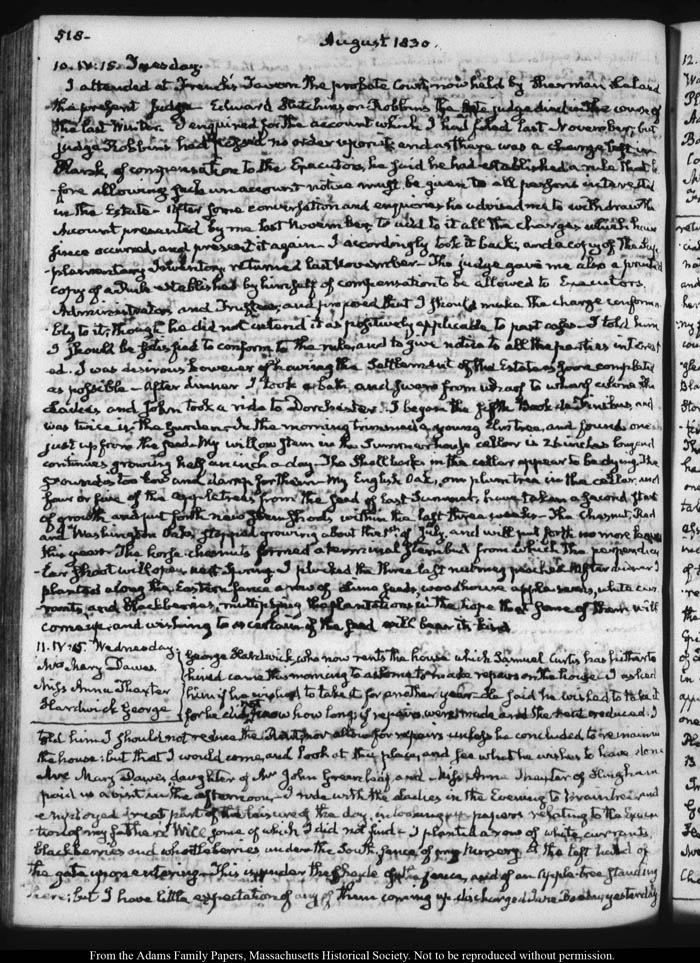 518-
August 1830.
10. IV:15. Tuesday.
I attended at French's Tavern the probate Court, now held by Sherman Leland
the present Judge Edward Hutchinson Robbins the late judge died in the course of
the last Winter. I enquired for the account which I had filed last November, but
Judge Robbins had passed no order upon it and as there was a charge left in
Blank, of compensation to the Executors, he said he had established a rule that be-
-fore allowing such an account notice must be given to all persons interested
in the Estate. After some conversation and enquiries he advised me to withdraw the
Account presented by me last November, to add to it all the charges which have
since occurred, and present it again. I accordingly took it back, and a copy of the Sup-
-plementary Inventory returned last November. The judge gave me also a printed
copy of a Rule established by himself of compensation to be allowed to Executors,
Administrators and Trustees, and proposed that I should make the charge conforma-
bly to it, though he did not intend it as positively applicable to past cases. I told him
I should be satisfied to conform to the rule, and to give notice to all the parties interest
-ed. I was desirous however of having the Settlement of the Estate as soon completed
as possible. After dinner I took a bath, and swam from wharf to wharf while the
Ladies and John took a ride to Dorchester. I began the fifth Book de Finibus, and
was twice in the Garden. In the morning trimmed a young Elm tree, and found one
just up from the seed. My willow stem in the Summer house cellar is 26 inches long and
continues growing half an inch a day. The Shellbarks in the cellar appear to be dying. The
ground is too low and damp for them. My English Oak, one plum tree in the cellar, and
four or five of the apple trees from the seed of last Summer, have taken a second start
of growth and put forth new stem shoots within the last three weeks. The Chesnut, Red
and Washington Oaks, stopped growing about the 1st of July, and will put forth no more leaves
this year. The horse chesnuts formed a terminal stem bud from which the perpendicu
-lar shoot will open next Spring. I plucked the three last nutmeg peaches. After dinner I
planted along the Eastern fence a row of plum seeds, woodhouse apple seeds, white cur-
-rants, and blackberries, multiplying the plantations in the hope that some of them will
come up, and wishing to ascertain if the seed will bear its kind.
11. IV:15. Wednesday
Mrs Mary Dawes
Miss Anna Thaxter
Hardwick George
George Hardwick, who now rents the house which Samuel Curtis has hitherto
hired came this morning to ask me to make repairs on the house. I asked
him if he wished to take it for another year. He said he wished to take it
for he did not know how long; if repairs were made and the rent reduced. I
told him I should not reduce the Rent, nor allow for repairs unless he concluded to remain in
the house: but that I would come and look at the place, and see what he wishes to have done
Mrs Mary Dawes daughter of Mr John Greenleaf, and Miss Anna Thaxter of Hingham
paid us a visit in the afternoon. I rode with the Ladies in the Evening to Braintree, and
employed great part of the leisure of the day, in looking up papers relating to the Execu
-tion of my father's Will, some of which I did not find. I planted a row of white currants,
blackberries and whortleberries under the South fence of my Nursery. At the left hand of
the gate upon entering. This is under the shade of the fence, and of an Apple-tree standing
here; but I have little expectation of any of them coming up. discharged Luke Bosley yesterday
From the Adams Family Papers, Massachusetts Historical Society. Not to be reproduced without permission.